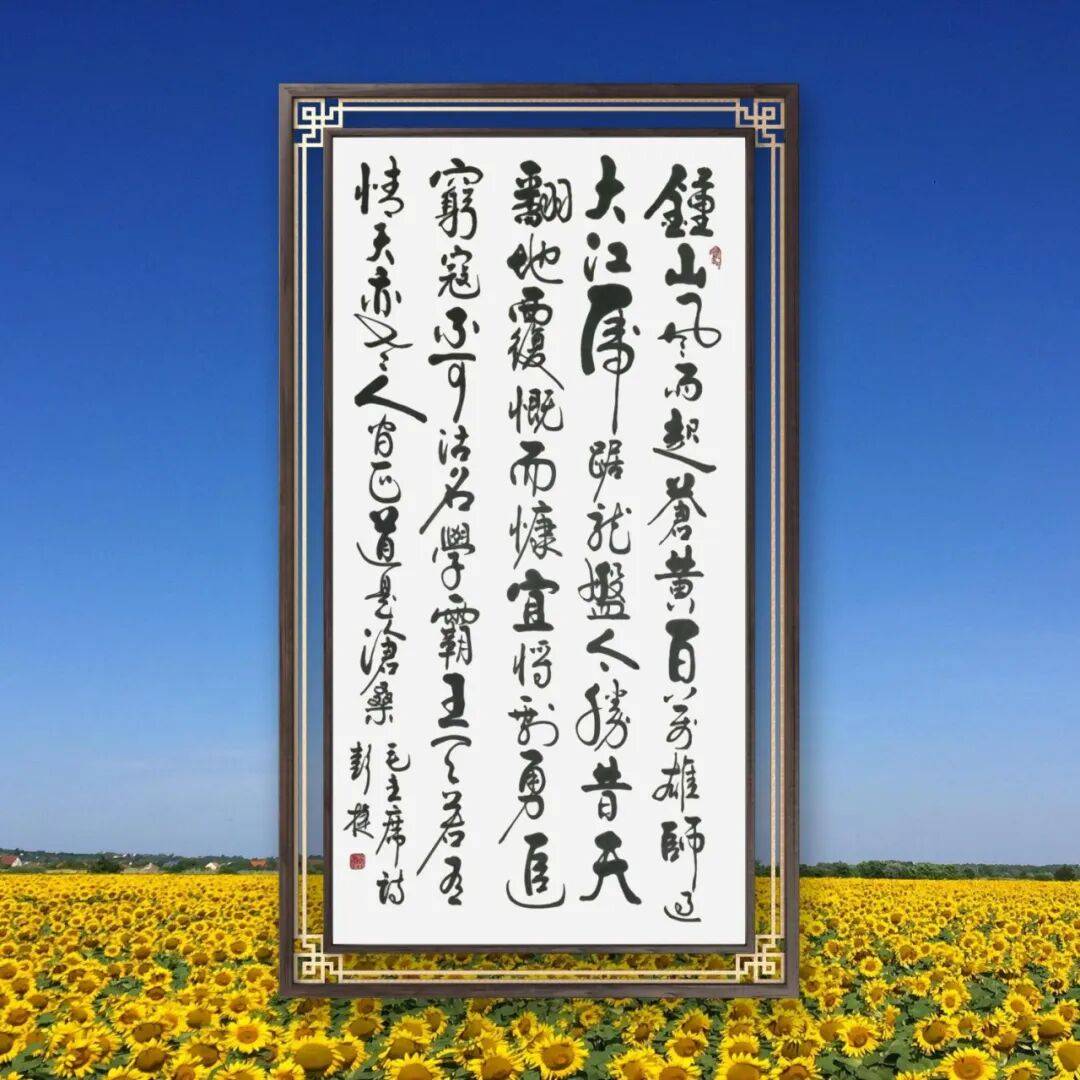 鍾山風雨起蒼黃百萬雄師過
大江虎踞龍盤今勝昔天
翻地覆慨而慷宜將剩勇追
窮寇不可沽名學霸王天若有
情天亦老人間正道是滄桑
毛主席詩
彭